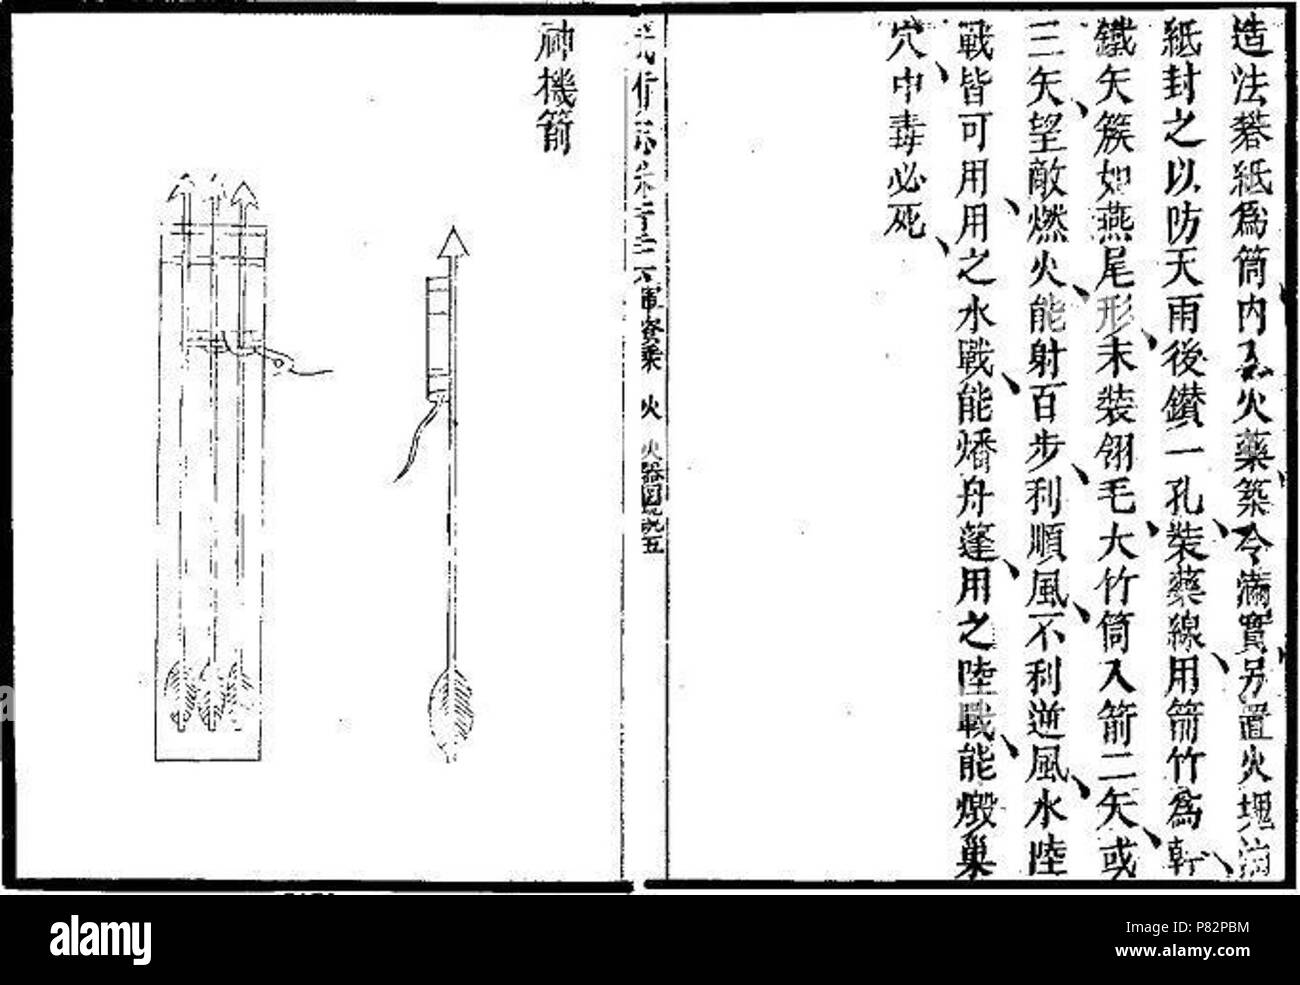 造法礬紙為筒內入火藥築令滿實另置火塊油
紙封之以防天雨後鑚一孔裝藥線用箭竹為幹
鐵矢簇如燕尾形末裝翎毛大竹筒入箭二矢或
三矢望敵燃火能射百步利順風不利逆風水陸
戰皆可用用之水戰能燔舟蓬用之陸戰能燬巢
穴中毒必死
軍資乘 火 火器圖說五
神機箭
alamy
Image ID: P82PBM
www.alamy.com